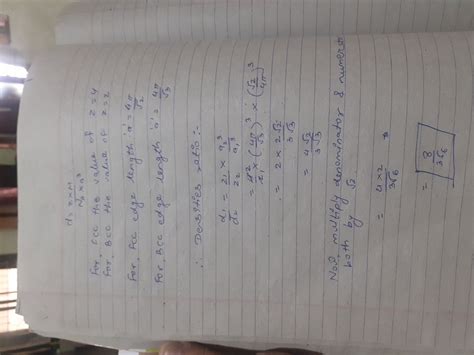 d = z×m / N_A × a³
For FCC the value of z = 4
For BCC the value of z = 2
For FCC edge length 'a' = 4r/√2
For BCC edge length 'a' = 4r/√3
∴ Densities ratio :-
d₁/d₂ = z₁/z₂ × a₂³/a₁³
= 4/2 × (4r/√3)³ × (√2/4r)³
= 2 × 2√2/3√3
= 4√2/3√3
Now, multiply denominator & numerator
both by √2
= 4×2/3√6
= 8/3√6